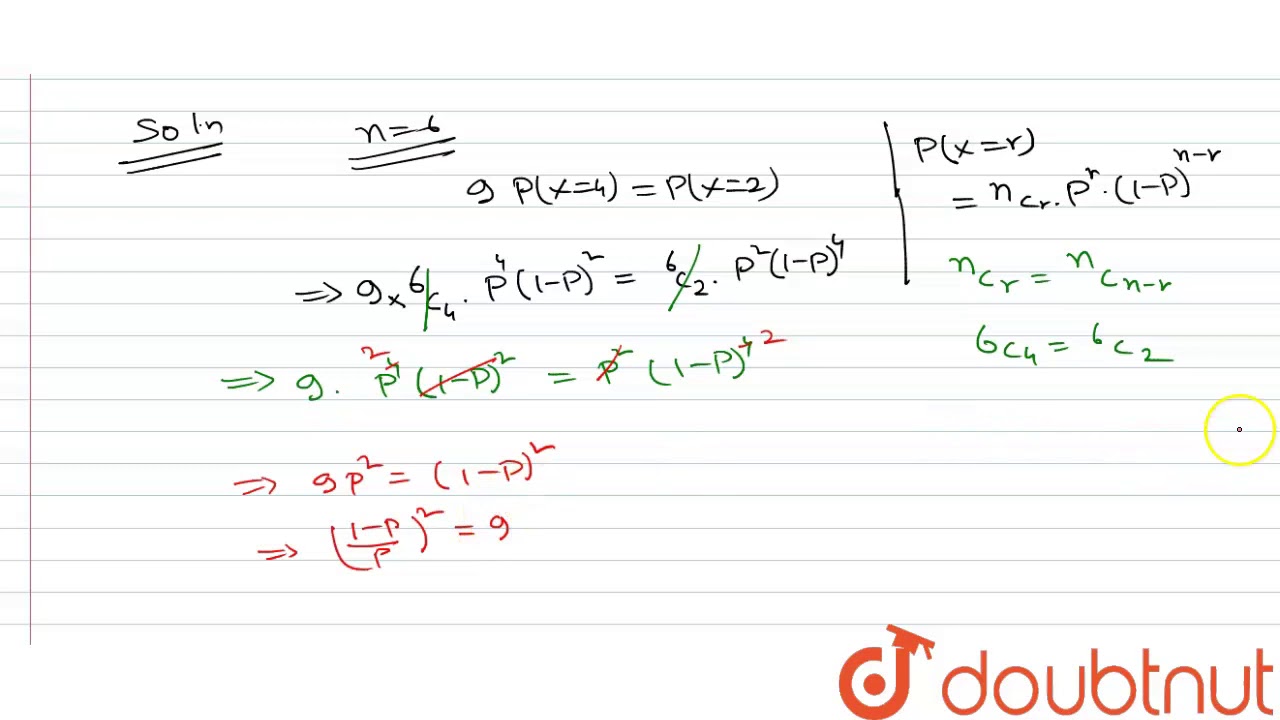 Soln n=6
9 P(x=4) = P(x=2)
⇒ 9 × ⁶C₄ · P⁴ (1-P)² = ⁶C₂ · P² (1-P)⁴
⇒ 9 · P⁴ ² (1-P)² = P² (1-P)⁴ ²
⇒ 9P² = (1-P)²
⇒ ((1-P)/P)² = 9
P(x=r)
= nCr · Pʳ · (1-P)ⁿ⁻ʳ
ⁿCr = ⁿCn-r
6C4 = ⁶C2
doubtnut